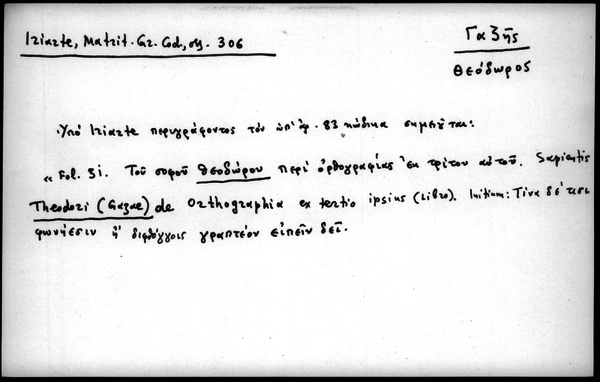 Iriarte, Matrit. Gr. Cod, σσ. 306
Γαζῆς
Θεόδωρος
Ὑπό Iriarte περιγράφοντος τόν ὑπ' ἀρ. 83 κώδικα σημειοῦται:
« Fol. 31. Τοῦ σοφοῦ Θεοδώρου περί ὀρθογραφίας ἐκ τρίτου αὐτοῦ. Sapientis
Theodori (Gazae) de Orthographia ex tertio ipsius (Libro). Initium: Τίνα δέ
φωνήεσιν ἤ διφθόγγοις γραπτέον εἰπεῖν δεῖ.